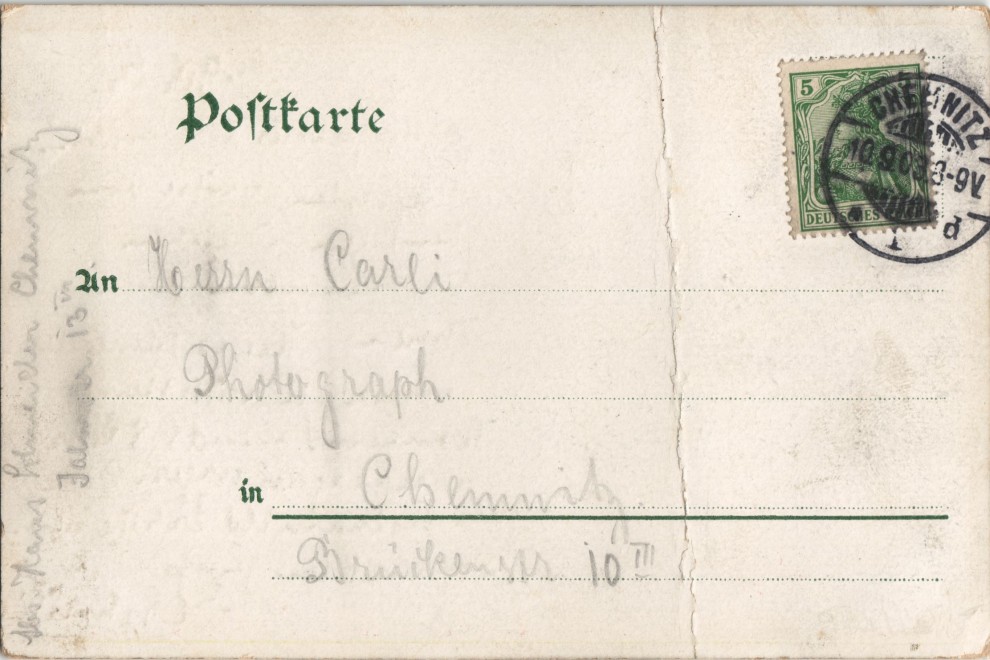 Postkarte
5
DEUTSCHES
CHEMNITZ
10.9.03. 8-9V.
1 d
An Herrn Carli
Photograph
in Chemnitz.
Brückenstr. 10 III
Hans Chemnitz
13 III